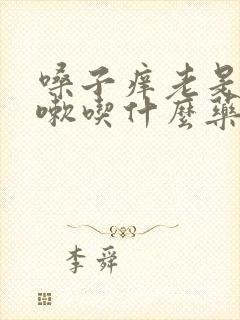 嗓子痒老是
嗽喫什麼藥
李舜